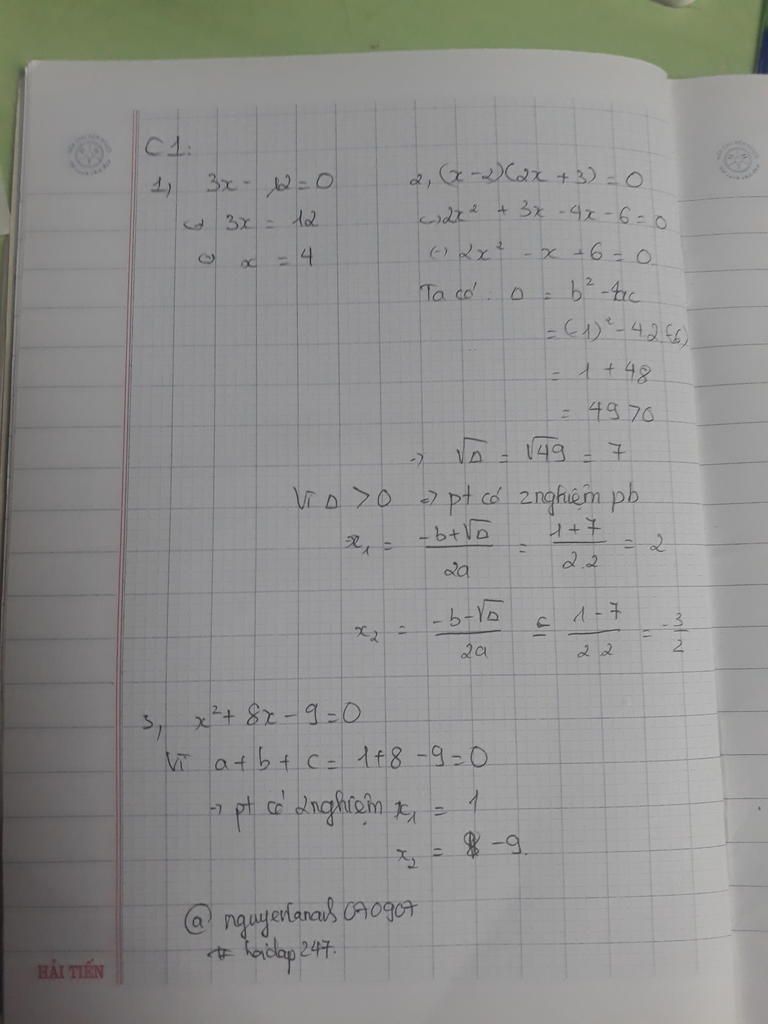 C1:
1, 3x - 12 = 0
<=> 3x = 12
<=> x = 4
2, (x-2)(2x+3) = 0
<=> 2x² + 3x - 4x - 6 = 0
<=> 2x² - x + 6 = 0
Ta có: Δ = b² - 4ac
= (-1)² - 4.2(-6)
= 1 + 48
= 49 > 0
-> √Δ = √49 = 7
Vì Δ > 0 => pt có 2 nghiệm pb
x₁ = (-b+√Δ)/2a = (1+7)/2.2 = 2
x₂ = (-b-√Δ)/2a = (1-7)/2.2 = -3/2
3, x² + 8x - 9 = 0
Vì a + b + c = 1 + 8 - 9 = 0
-> pt có 2 nghiệm x₁ = 1
x₂ = -9
# hoidap247.
HẢI TIẾN